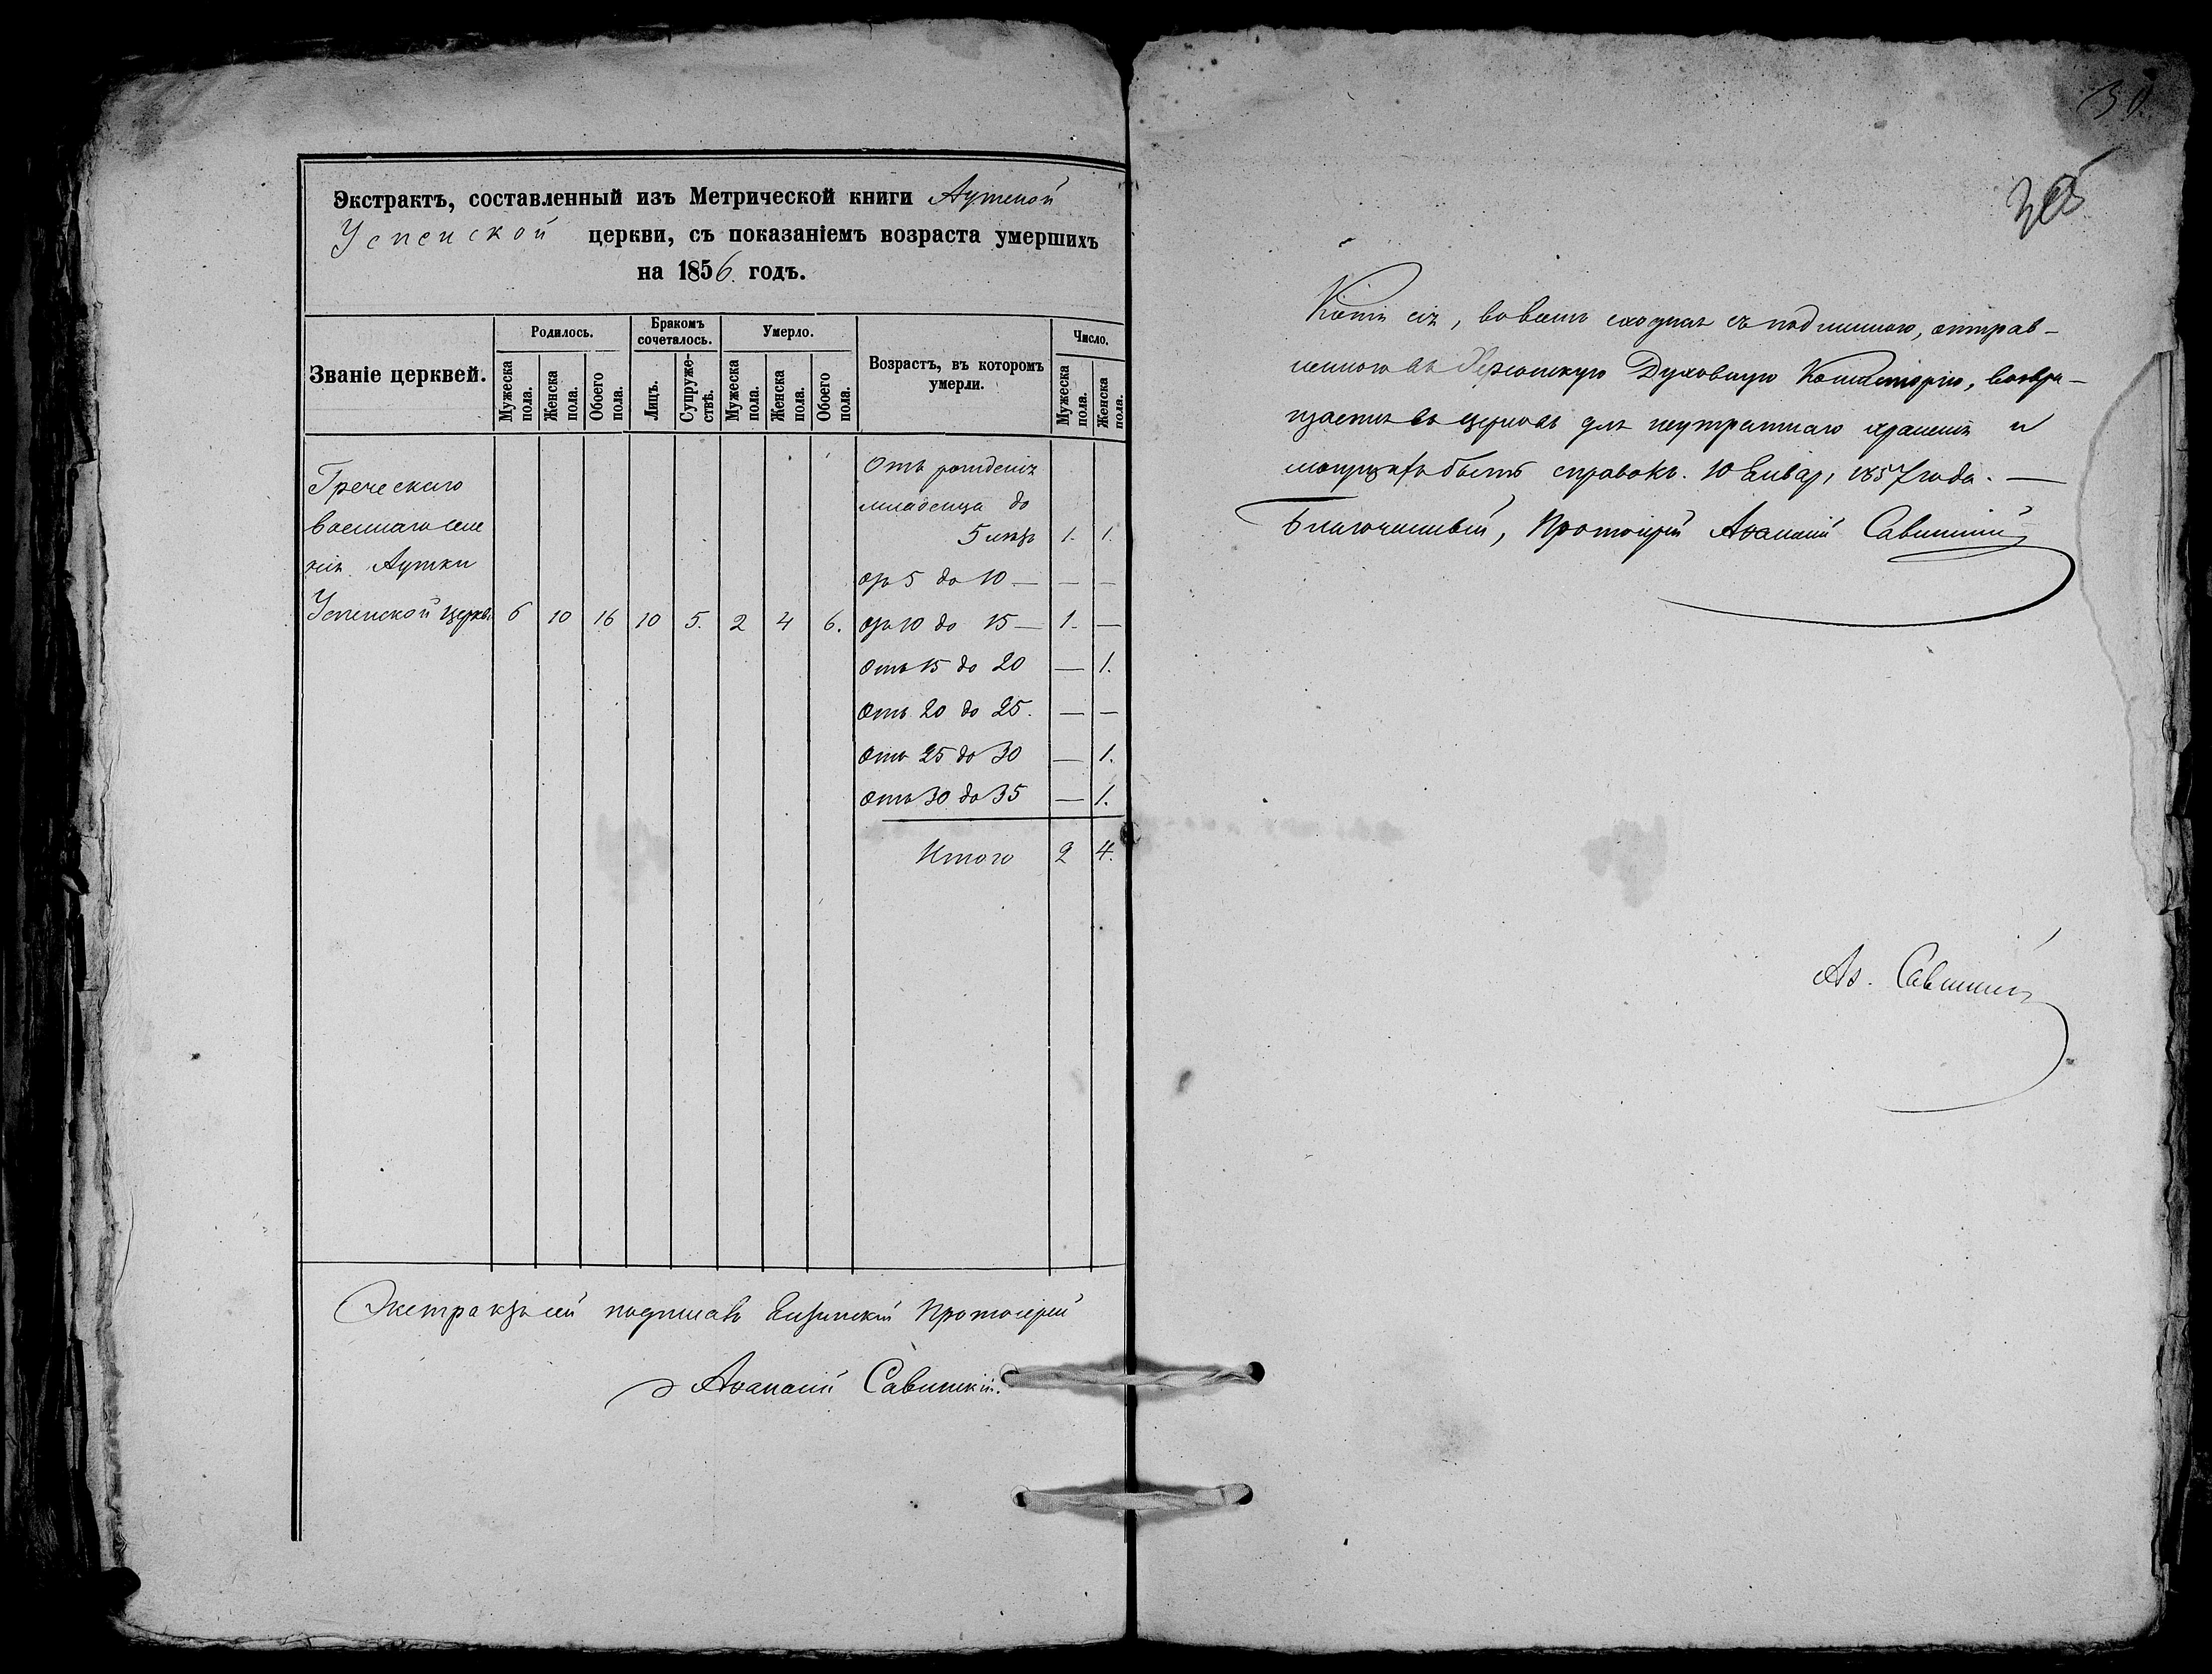 Экстрактъ, составленный изъ Метрической книги Аутской
Успенской церкви, съ показаніемъ возраста умершихъ
на 1856. годъ.
Званіе церквей.
Родилось.
Бракомъ сочеталось.
Умерло.
Возрастъ, въ которомъ умерли.
Число.
Мужеска пола.
Женска пола.
Обоего пола.
Лицъ.
Супружествъ.
Мужеска пола.
Женска пола.
Обоего пола.
Мужеска пола.
Женска пола.
Отъ рожденія
младенца до
5 летъ 1. 1.
Греческаго
военнаго селе
нія Аутки
отъ 5 до 10 — — —
Успенской церкви 6 10 16 10 5. 2 4 6. отъ 10 до 15 — 1. —
Отъ 15 до 20 — 1.
Отъ 20 до 25. — —
Отъ 25 до 30 — 1.
Отъ 30 до 35 — 1.
Итого 2 4.
Экстрактъ сей подписалъ Протоіерей
Аѳанасій Савинскій.
30.
305
Копія сія, во всемъ сходная съ подлинною, отправ-
ленною въ Херсонскую Духовную Консисторію, возвра-
щается въ церковь для неутратнаго храненія и
могущихъ быть справокъ. 10 Январ, 1857 года. —
Благочинный, Протоіерей Аѳанасій Савинскій
Аѳ. Савинскій